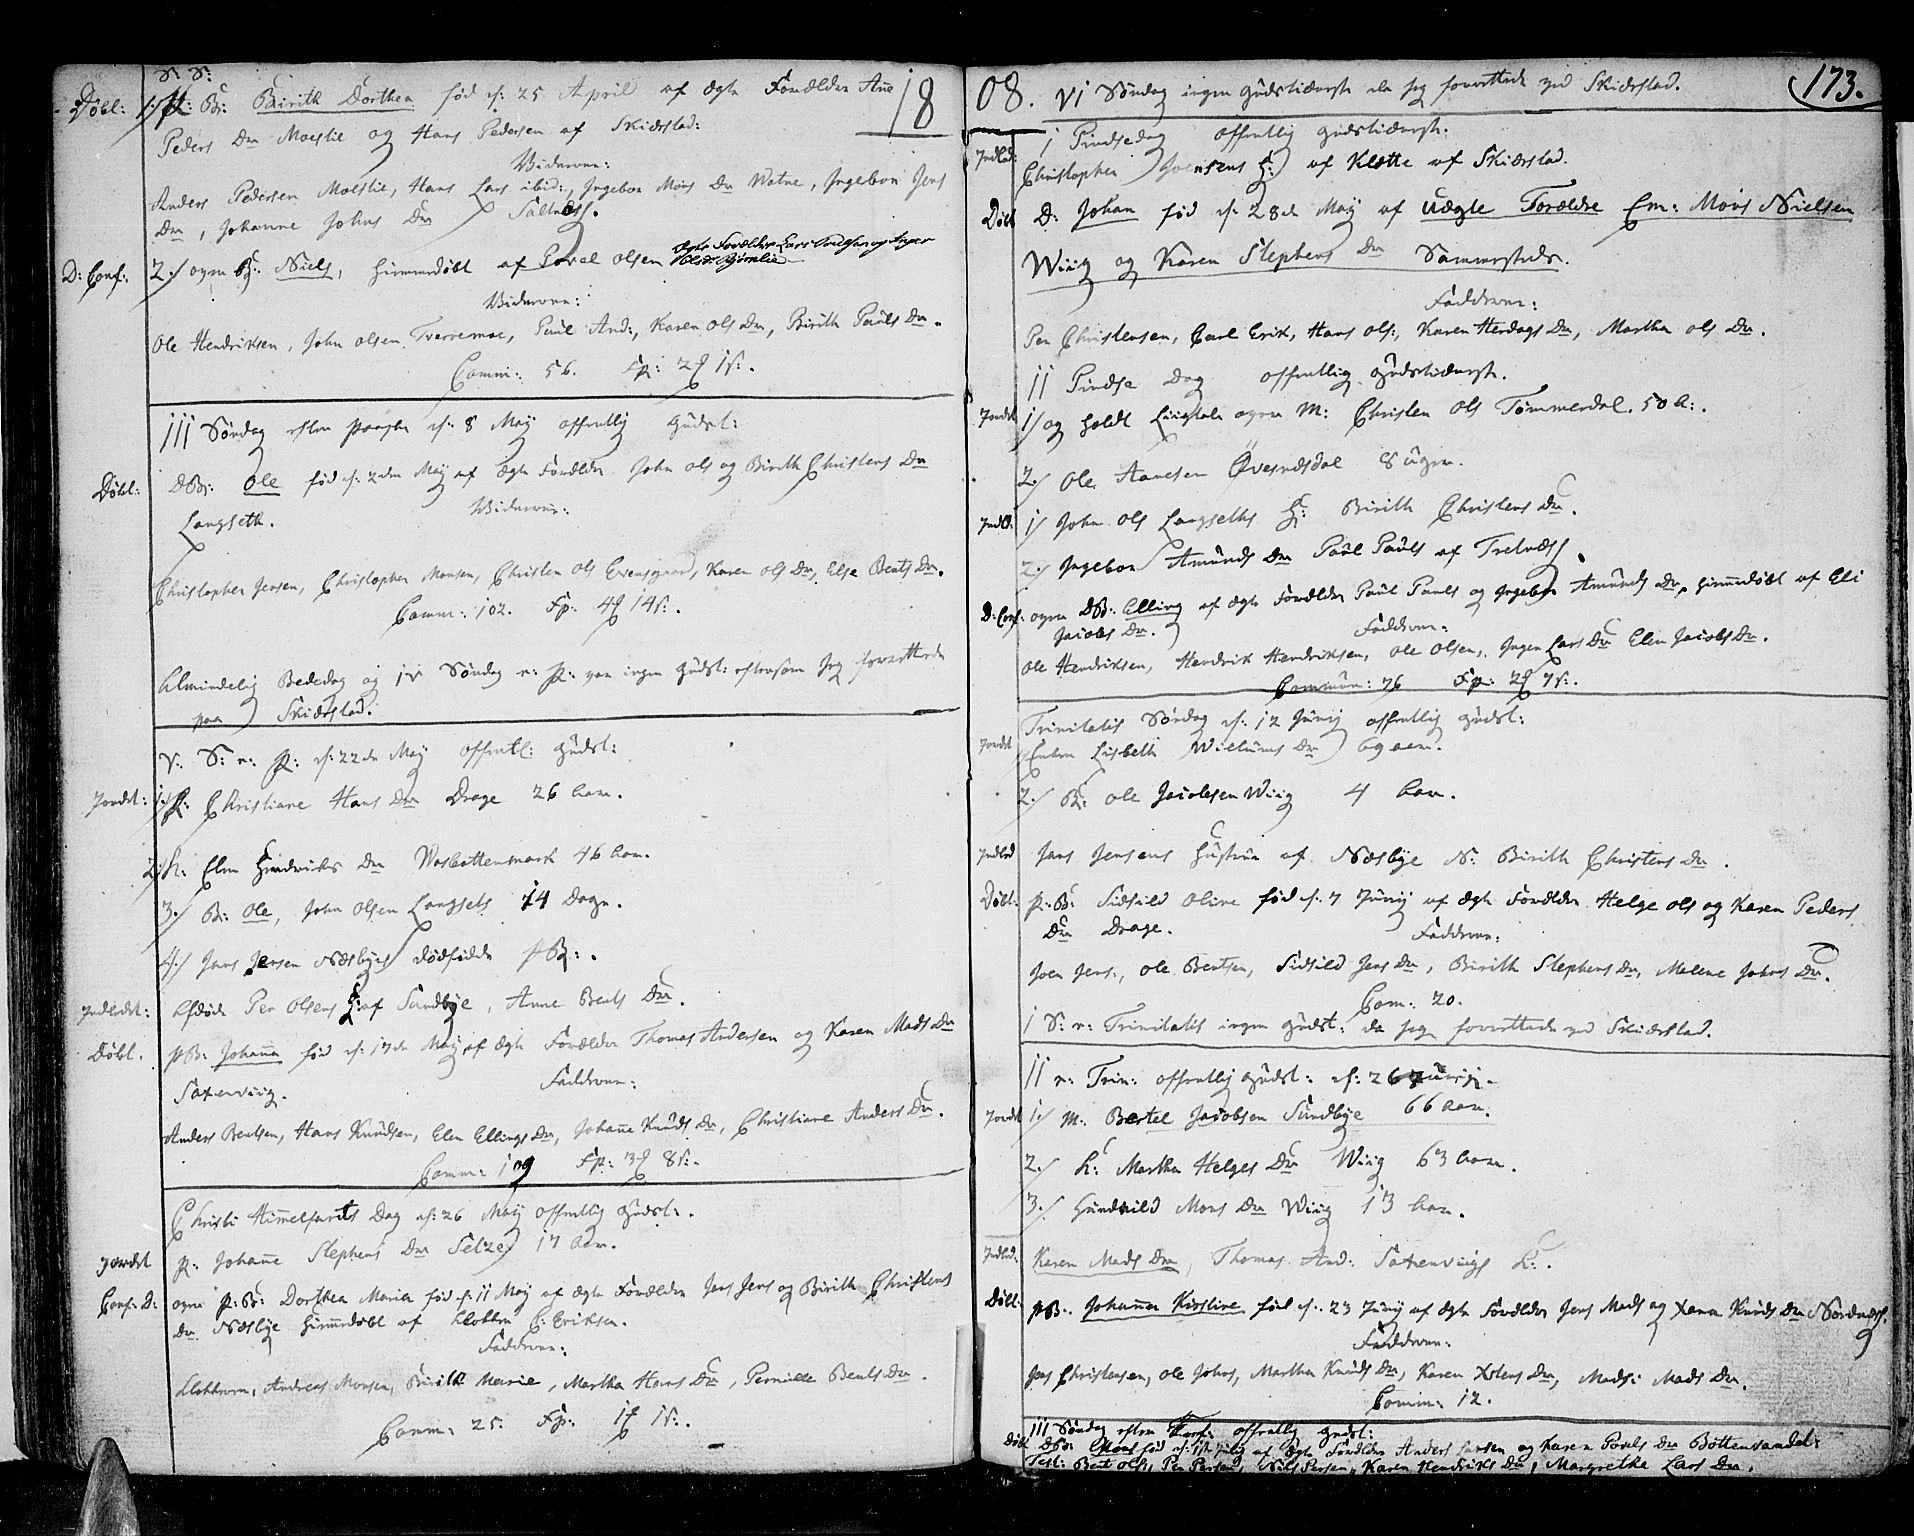 S: S:
Döbt: 1/ P: B: Birith Dorthea fød d: 25 April af ægte Forældre Ane
Peders Dr Moeslie og Hans Pedersen af Skierstad:
Vidner:
Anders Pedersen Moeslie, Hans Lars ibid:, Ingebor Mons Dr Watne, Ingebor Jens
Dr, Johanne Johns Dr Saltnæss.
D: Conf: 2/ Niels, hiemmedøbt af Povel Olsen ægte Forældre Lars
Vidner:
Ole Hendriksen, John Olsen Tverremoe, Paul And:, Karen Ols Dr, Birith Pauls Dr.
Comm: 56. Fp: 2 1 s:.
III Søndag efter Paaske d: 8 May offentlig Gudst:
Döbt: D B: Ole fød d: 2den May af ægte Forældre John Ols og Birith Christens Dr
Langseth. Vidner:
Christopher Jensen, Christopher Monsen, Christen Ols Evensgaard, Karen Ols Dr, Else Bents Dr.
Comm: 102. Fp: 4 14 s:.
Almindelig Bededag og IV Søndag e: P: var ingen Gudst: eftersom jeg forrettede
paa Skierstad.
V: S: e: P: d: 22de May offentl: Gudst:
Jordet: 1/ P: Christiane Hans Dr Drage 26 Aar.
2/ K: Elen Hendriks Dr Wasbottenmark 46 Aar.
3/ B: Ole, John Olsen Langsets 14 Dage.
4/ Jens Jensen Næsbyes dødfødde P B:.
Indledet: Per Olsens H: af Sundbye, Anne Bents Dr.
Döbt. P B: Johanna fød d: 17de May af ægte Forældre Thomas Andersen og Karen Mads Dr
Saxenviig. Faddere:
Anders Bentsen, Hans Knudsen, Elen Ellings Dr, Johanne Knuds Dr, Christiane Anders Dr.
Comm: 109 Fp: 3 8 s:.
Christi Himmelfarts Dag d: 26 May offentlig Gudst:.
Jordet P: Johanne Stephens Dr Setze 17 Aar.
Conf: D: P: B: Dorthea Maria fød d: 11 May af ægte Forældre Jens Jens og Birith Christens
Dr Næsbye hiemmedøbt af Klokker C: Eriksen.
Faddere:
Klokkeren, Andreas Monsen, Birith Marie, Martha Hans Dr, Pernille Bents Dr.
Comm: 25. Fp: 1 1 s:.
1808. VI Søndag ingen Gudstieneste da jeg forrettede ved Skierstad. 173.
I Pindsedag offentlig Gudstieneste.
Indled: Christopher Joensens H: af Klette af Skierstad.
Döbt D: Johan fød d: 28de May af uægte Forældre Em: Mons Nielsen
Wiig og Karen Stephens Dr Sammesteds.
Faddere:
Per Christensen, Carl Erik, Hans Ols:, Karen Herdags Dr, Martha Ols Dr.
II Pindse Dag offentlig Gudstieneste.
Jordet 1/ og holdt Liigtale over M: Christen Ols Tømmerdal. 50 A:.
2/ Ole Hansen Øvesnæsdal 8 uger.
Indl: 1/ John Ols Langseths H: Birith Christens Dr.
2/ Ingebor Amunds Dr Paul Pauls af Tretnæss.
D: Conf: D B: Elling af ægte Forældre Paul Pauls og Ingebor Amunds Dr, hiemmedøbt af Eli
Jacobs Dr. Faddere:
Ole Hendriksen, Hendrik Hendriksen, Ole Olsen, Inger Lars Dr Elen Jacobs Dr.
Commun: 76 Fp: 2 7 s:.
Trinitatis Søndag d: 12 Junij offentlig Gudst:
Jordet Enken Lisbeth Willums Dr 69 aar.
2/ B: Ole Jacobsen Wiig 4 Aar.
Indled Jens Jensens Hustrue af Næsbye N: Birith Christens Dr.
Döbt: P: B: Sidsild Oline fød d: 7 Junij af ægte Forældre Helge Ols og Karen Peders
Dr Drage. Faddere:
Joen Jens:, Ole Bentsen, Sidsild Jens Dr, Birith Stephens Dr, Malene Johns Dr.
Com: 20.
I S: e: Trinitatis ingen Gudst: da jeg forrettede ved Skierstad.
II e: Trin: offentlig Gudst: d: 26 Junij.
Jordet 1/ M: Bertel Jacobsen Sundbye 66 Aar.
2/ K: Martha Helges Dr Wiig 63 Aar.
3/ Gundvild Mons Dr Wiig 13 Aar.
Indled: Karen Mads Dr, Thomas And: Saxenviigs K:.
Döbt: P B: Johanna Kirstine fød d: 23 Junij af ægte Forældre Jens Mads og Xana Knuds Dr Nordnæss.
Faddere:
Jens Christensen, Ole Johns, Martha Knuds Dr, Karen Xstens Dr, Mads: Mads Dr.
Comm: 12.
III Søndag efter offentlig Gudst:
Döbt D B: Mons fød d: af ægte Forældre Anders Larsen og Karen Povels Dr Bottensandal:
Test: Bent Ols, Per Persen, Nils Persen, Karen Hendriks Dr, Margrethe Lars Dr.